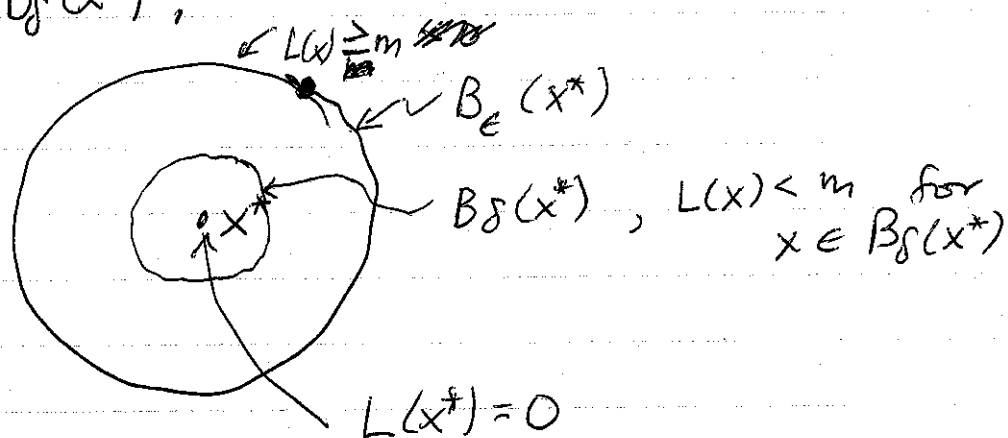 B_δ(x*),
L(x) ≥ m
B_ϵ(x*)
x*
B_δ(x*), L(x) < m for
x ∈ B_δ(x*)
L(x*) = 0